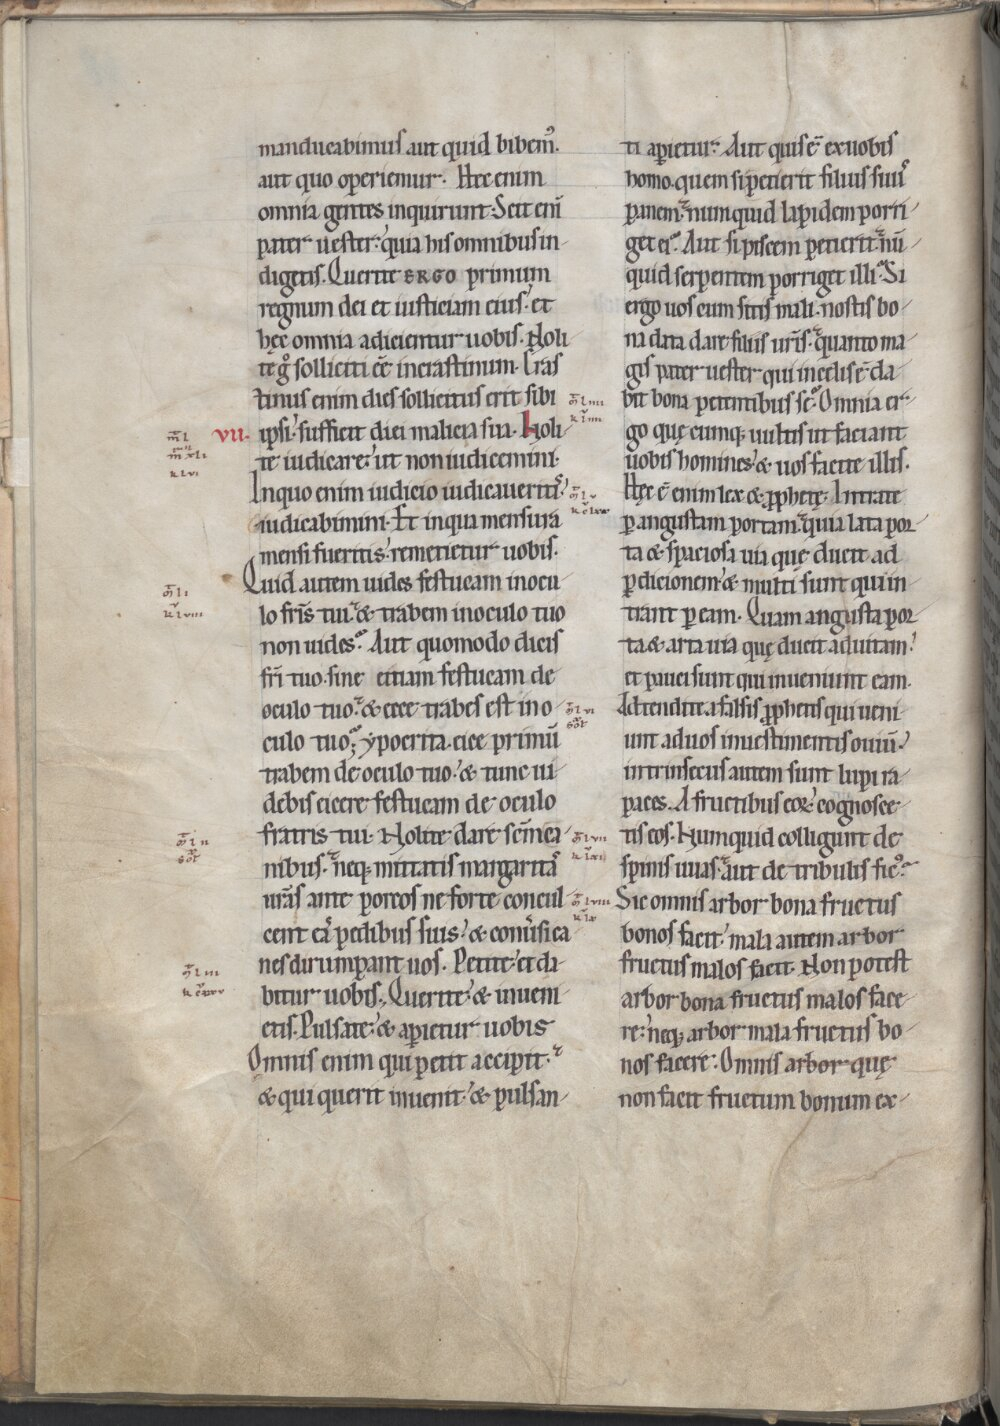 manducabimus aut quid bibem᷒.
aut quo operiemur. Hec enim
omnia gentes inquirunt. Scit eni̅
pater uester. quia his omnibus in-
digetis. Querite ERGO primum
regnum dei et iusticiam eius. et
hęc omnia adicientur uobis. Noli
te g̊ solliciti ee̅ incrastinum. Cras
tinus enim dies sollicitus erit sibi
VII. ipsi. sufficit diei malicia sua. Noli-
te iudicare. ut non iudicemini.
Inquo enim iudicio iudicaueritis.
iudicabimini. Et inqua mensura
mensi fueritis. remetietur uobis.
Quid autem uides festucam inocu-
lo fr̅is tui. & trabem inoculo tuo
non uides. Aut quomodo dicis
fr̅i tuo. sine eitiam festucam de
oculo tuo. & ecce trabes est in o-
culo tuo; ypocrita. eice primu̅
trabem de oculo tuo. & tunc ui-
debis eicere festucam de oculo
fratris tui. Nolite dare sc̅m ca-
nibus. neq; mittatis margaritas
ur̅as ante porcos ne forte concul-
cent eas pedibus suis. & conuersi ca-
nes dirumpant uos. Petite. et da-
bitur uobis. Querite. & inueni-
etis. Pulsate. & apietur uobis
Omnis enim qui petit accipit.
& qui querit inuenit. & pulsan-
ti apietur. Aut quis e̅ exuobis
homo. quem si petierit filius suus
panem. numquid lapidem porri-
get ei. Aut si piscem petierit. nu̅-
quid serpentem porriget illi. Si
ergo uos cum sitis mali. nostis bo-
na data dare filiis ur̅is. quanto ma-
gis pater uester qui in celis e̅ da-
bit bona petentibus se. Omnia er-
go quęcumq; uultis ut faciant
uobis homines. & uos facite illis.
Hęc e̅ enim lex & p̅phetę. Intrate
p angustam portam. quia lata por-
ta & spaciosa uia quę ducit ad
pdicionem. & multi sunt qui in-
trant p eam. Quam angusta por-
ta & arta uia quę ducit aduitam.
et pauci sunt qui inueniunt eam.
Adtendite a falsis p̅phetis qui ueni-
unt aduos inuestimentis ouiu̅.
intrinsecus autem sunt lupi ra-
paces. A fructibus eoꝝ cognosce-
tis eos. Numquid colligunt de
spinis uuas. aut de tribulis fic᷒.
Sic omnis arbor bona fructus
bonos facit. mala autem arbor
fructus malos facit. Non potest
arbor bona fructus malos face-
re. neq; arbor mala fructus bo-
nos facere. Omnis arbor quę
non facit fructum bonum ex-